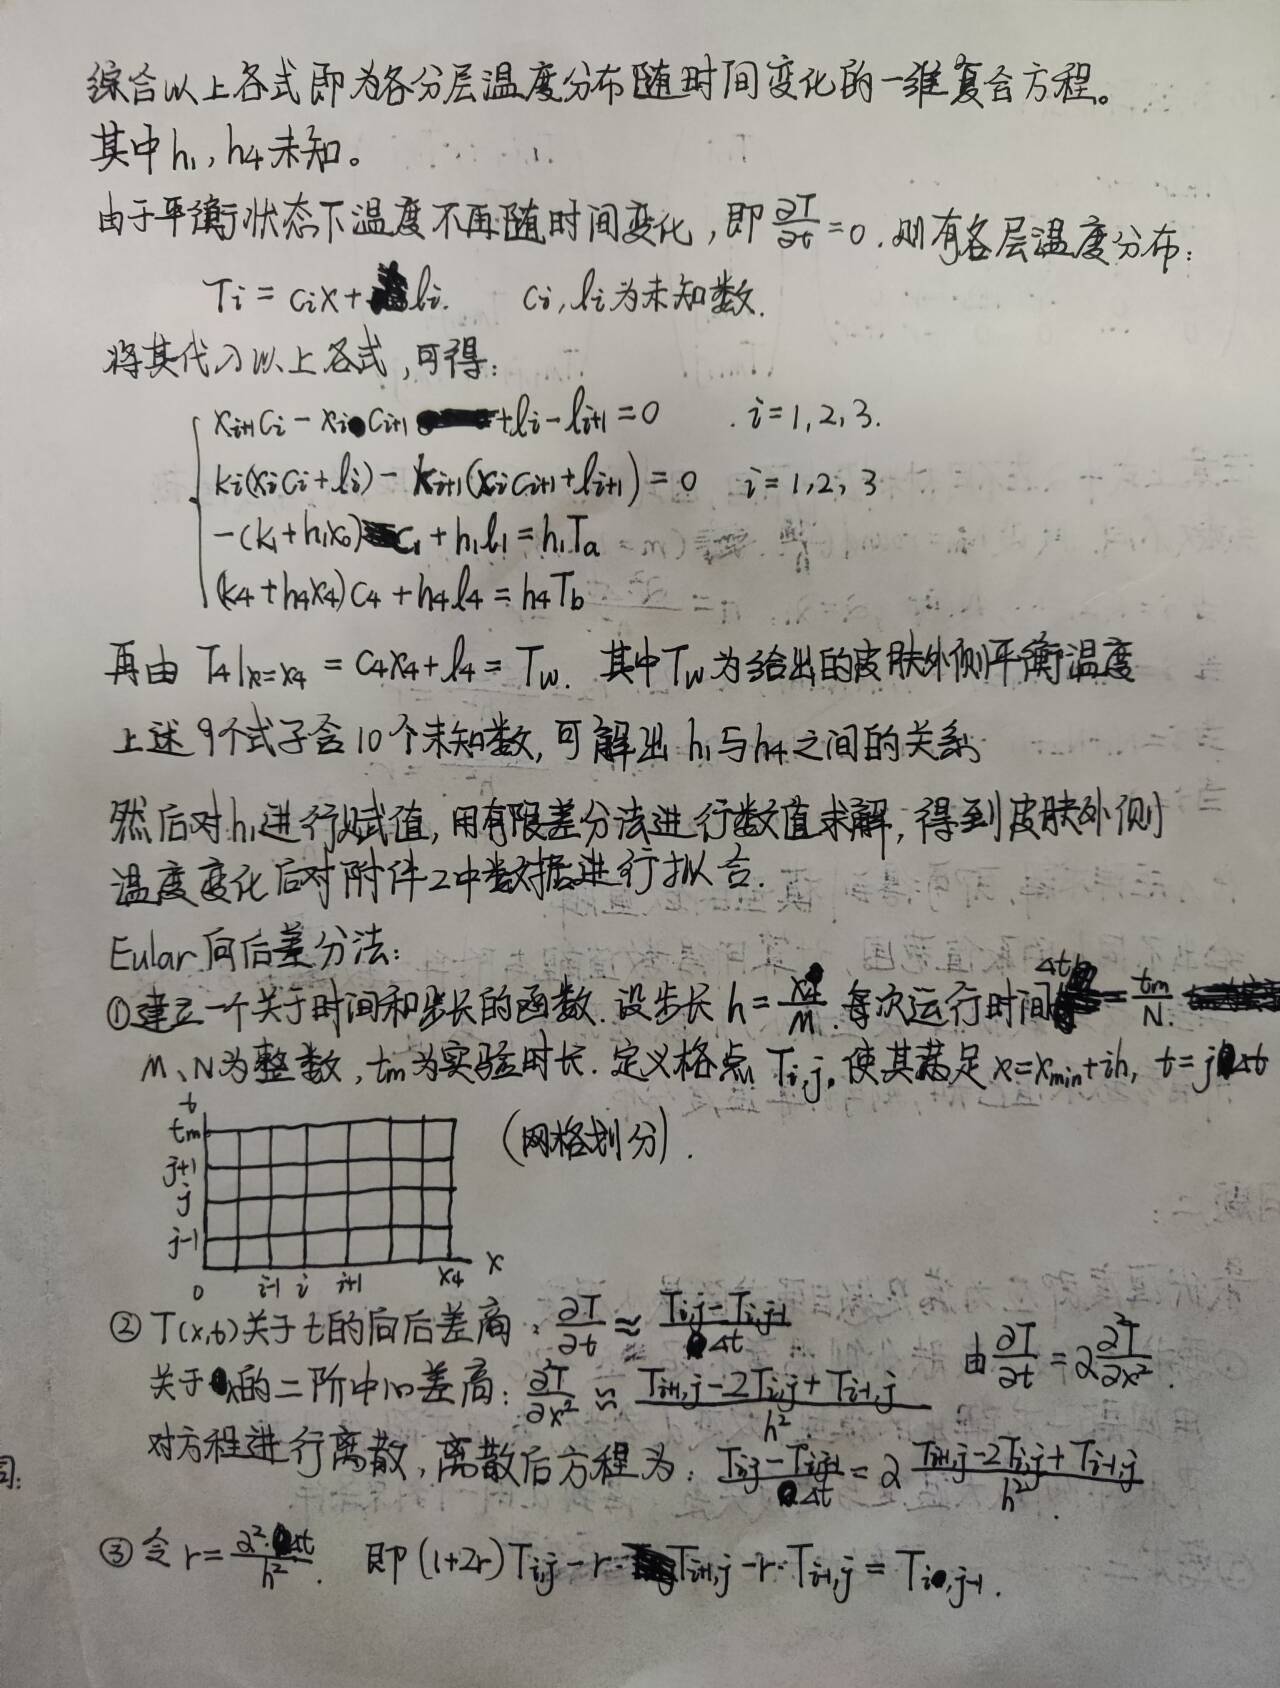 综合以上各式即为各分层温度分布随时间变化的一维复合方程。
其中h₁,h₄未知。
由于平衡状态下温度不再随时间变化,即∂T/∂t=0.则有各层温度分布:
Ti = cix+li. ci,li为未知数.
将其代入以上各式,可得:
xi+1ci - xici+1 +li-li+1=0 . i=1,2,3.
ki(xici+li) - ki+1(xici+1+li+1)=0 i=1,2,3
-(k₁+h₁x₀)c₁+h₁l₁=h₁Ta
(k₄+h₄x₄)c₄+h₄l₄=h₄Tb
再由 T₄|x=x₄ = c₄x₄+l₄=Tw. 其中Tw为给出的皮肤外侧平衡温度
上述9个式子含10个未知数,可解出h₁与h₄之间的关系
然后对h₁进行赋值,用有限差分法进行数值求解,得到皮肤外侧
温度变化后对附件2中数据进行拟合.
Eular向后差分法:
①建立一个关于时间和步长的函数.设步长h=x₄/M.每次运行时间Δt=tm/N.
M、N为整数,tm为实验时长.定义格点Ti,j,使其满足x=xmin+ih, t=jΔt
t
tm
j+1
j
j-1
0 i-1 i i+1 x₄ x
(网格划分).
②T(x,t)关于t的向后差商:∂T/∂t≈(Ti,j-Ti,j-1)/Δt
关于x的二阶中心差商:∂²T/∂x²≈(Ti+1,j-2Ti,j+Ti-1,j)/h² 由∂T/∂t=α∂²T/∂x².
对方程进行离散,离散后方程为:(Ti,j-Ti,j-1)/Δt=α(Ti+1,j-2Ti,j+Ti-1,j)/h².
③令r=α²·Δt/h². 即(1+2r)Ti,j-r·Ti+1,j-r·Ti-1,j=Ti,j-1.